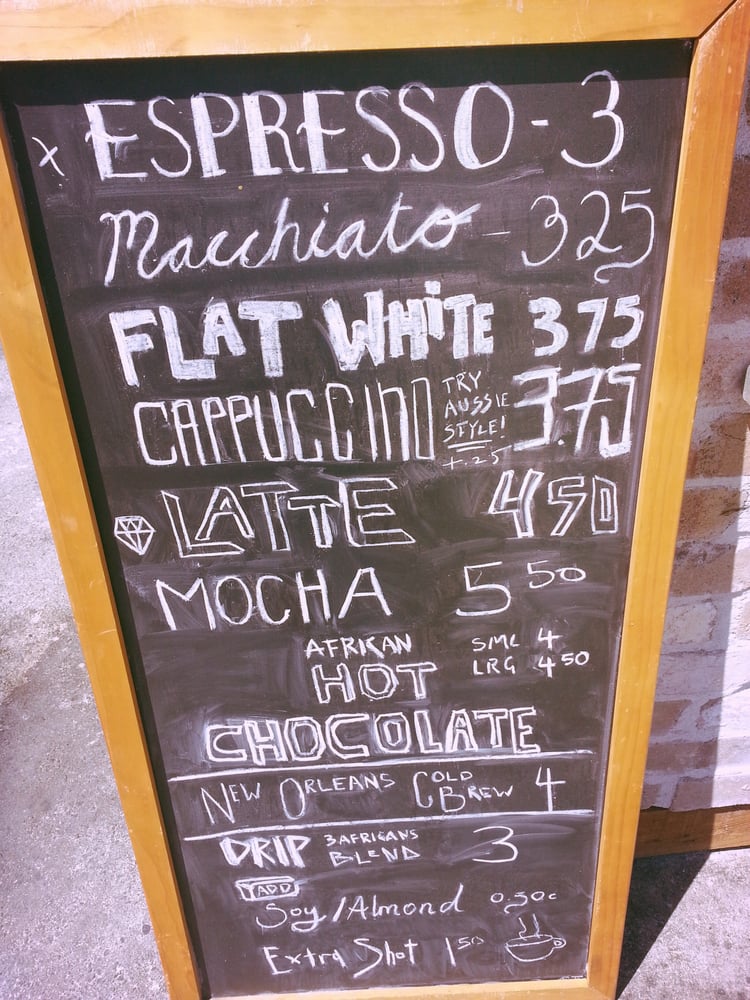 x ESPRESSO - 3
Macchiato - 325
FLAT WHiTE 375
CAPPUCCINO TRY AUSSIE STYLE! +.25 3.75
LATTE 450
MOCHA 5 50
AFRICAN SML 4
HOT LRG 4 50
CHOCOLATE
NEW ORLEANS COLD BREW 4
DRIP 3 AFRICANS BLEND 3
ADD
Soy/Almond 0.50c
Extra Shot 1 50